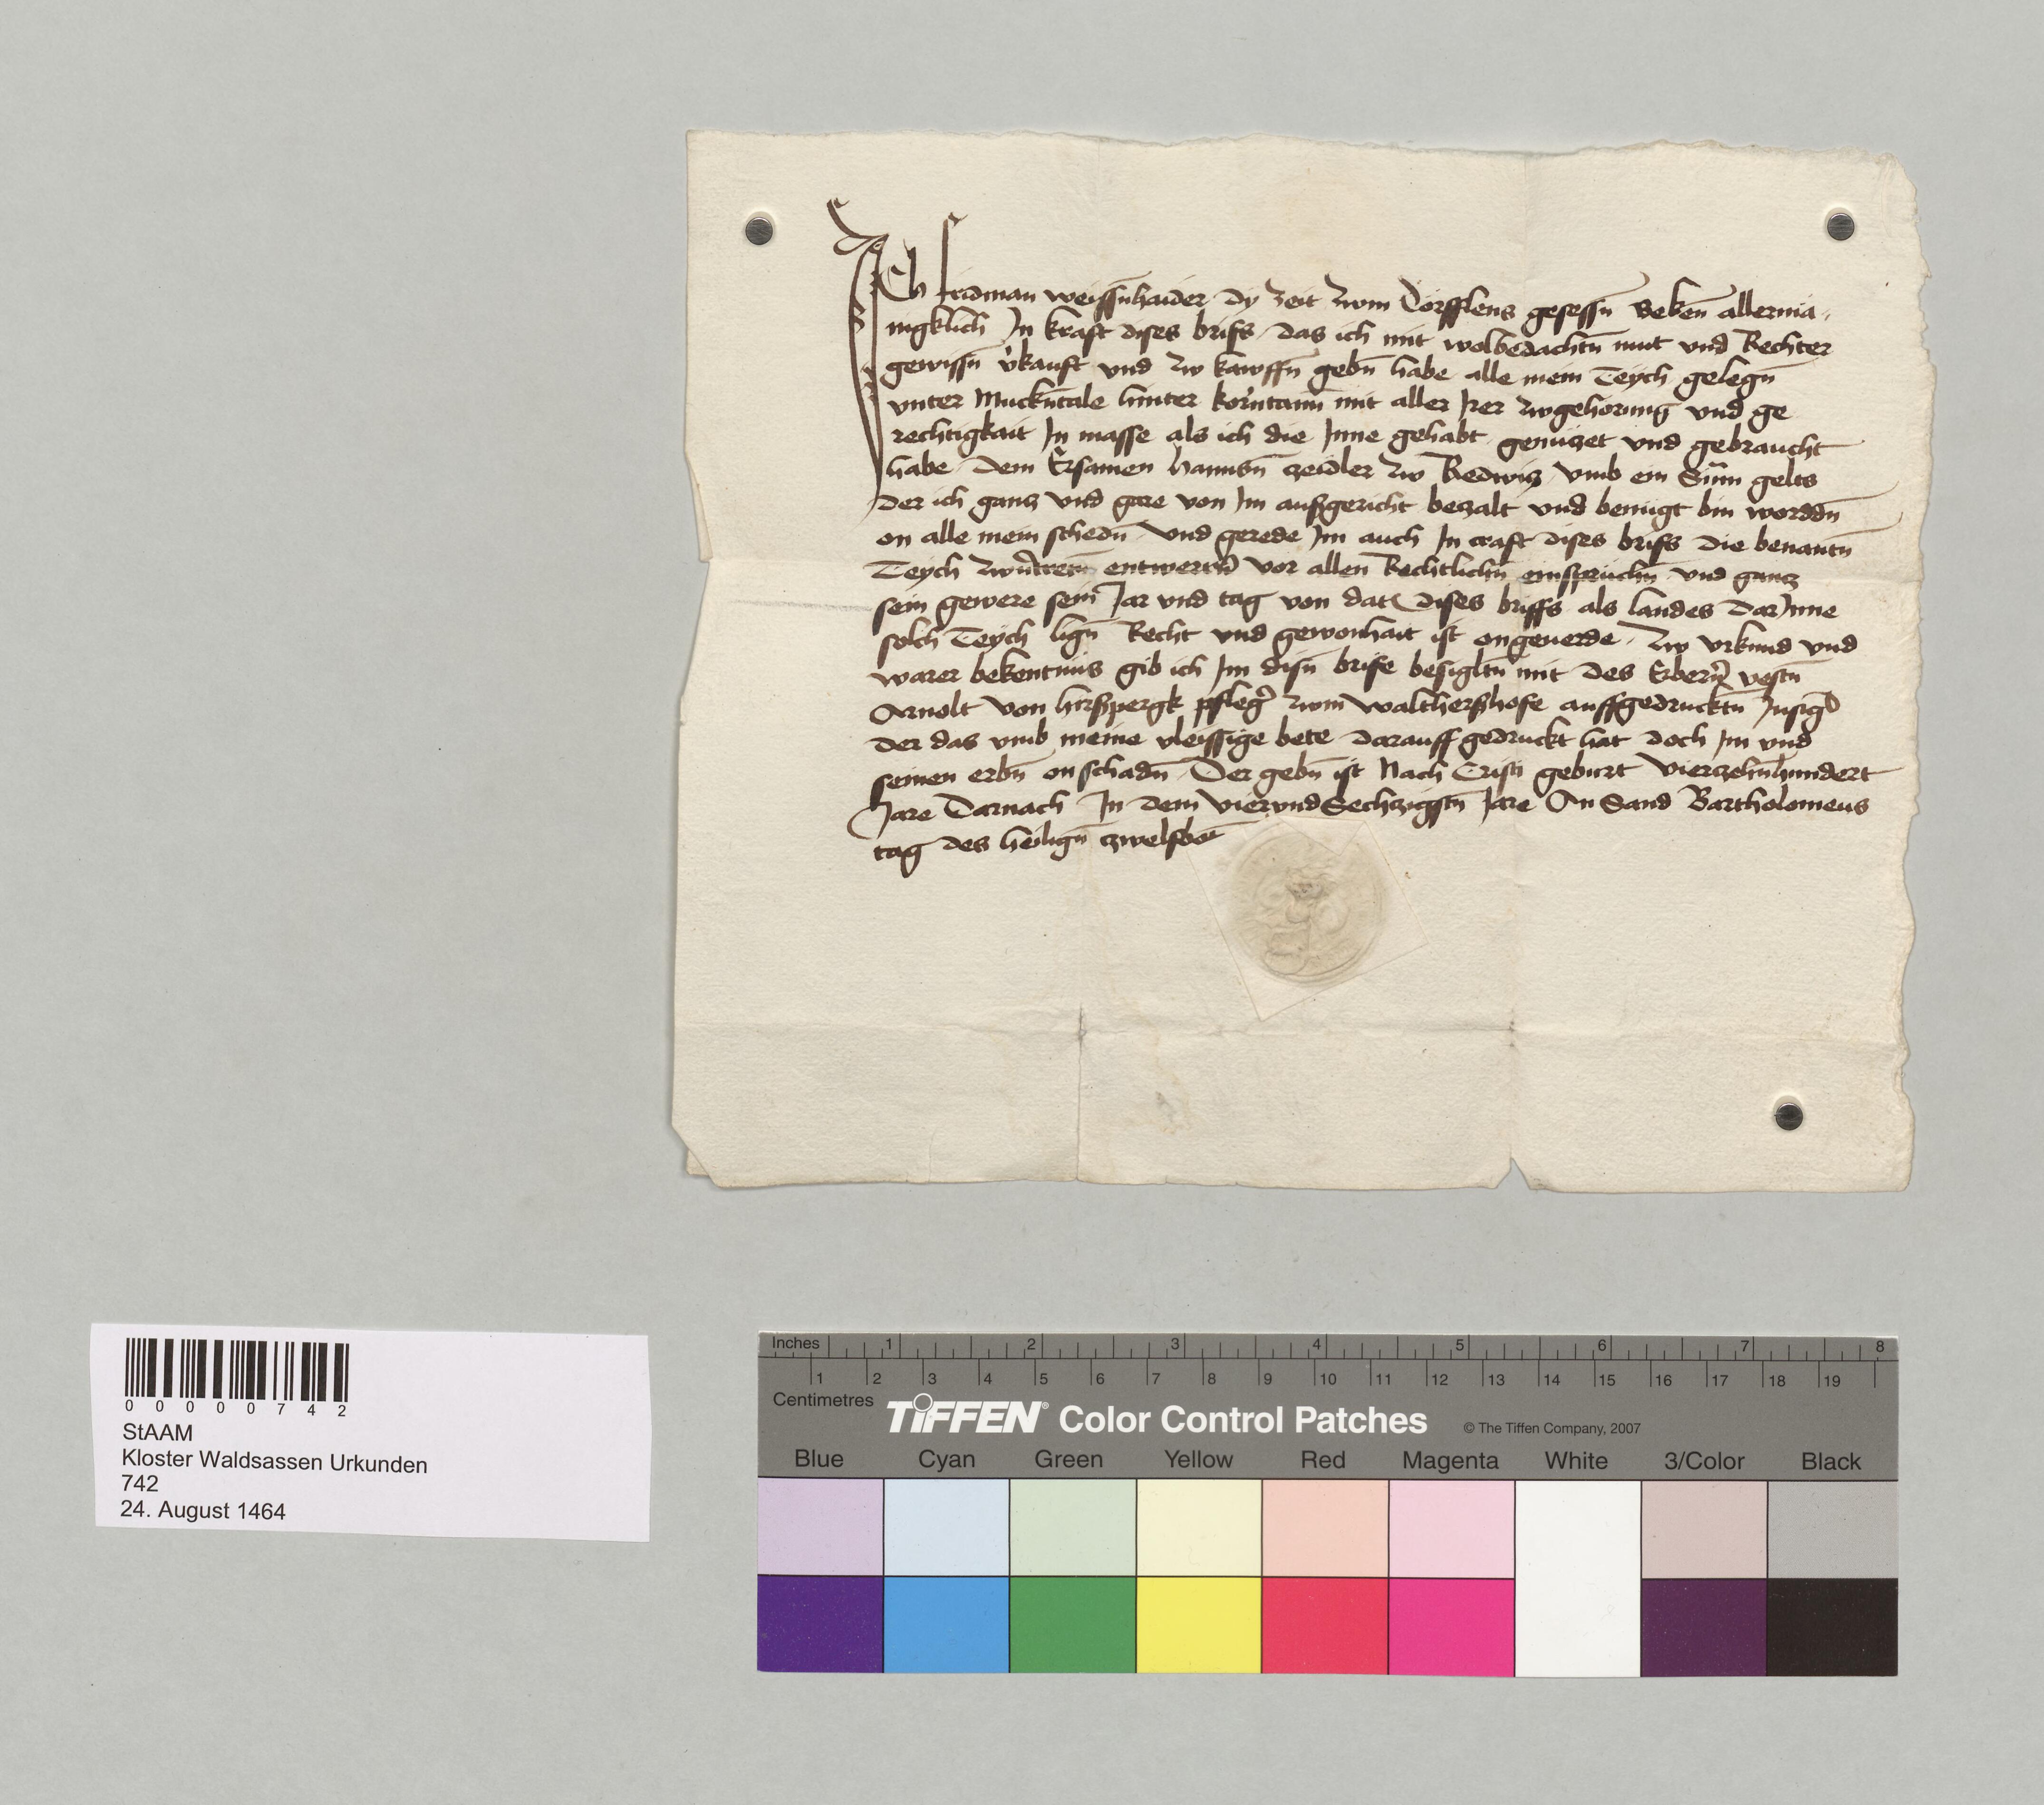 Ich fridman weissnhaider dy zeit zwm dörfflens gesessn̄ Beken̄ allermä-
nigklich In kraft dises brifs das ich mit wolbedachtn̄ mut vnd Rechter
gewissn̄ v̓kauft vnd zw kawffn̄ gebn̄ habe alle mein Teÿch gelegn̄
vnter Muckn̄tale hinter korn̓tann mit aller Irer zwgehorung vnd ge
rechtigkait In masse als ich die Inne gehabt genüczet vnd gebraucht
habe dem Ersamen hannsn̄ zeidler zw Redwicz vmb ein Sūm gelts
der ich gancz vnd gare von Im außgericht beczalt vnd benügt bin worddn̄
on alle mein schedn̄ Vnd gerede Im auch In craft dises brifs die benantn̄
Teÿch entwerrn̄ vor allen Rechtlichn̄ einsprüchn̄ vnd gancz
sein gewere sein Jar vnd tag von dat dises briffs als landes darInne
solch Teÿch lign̄ Recht vnd gewonhait ist ongeuerde Zw vrkund vnd
warer bekentnüs gib ich Im disn̄ brife besigltn̄ mit des Erbern̄ vestn̄
Arnolt von hirßpergk pfleg̓ zwm waltherßhofe auffgedrucktn̄ Insigl
der das vmb meine vleissige bete darauff gedruckt hat doch Im vnd
seinen erbn̄ on schadn̄ Der gebn̄ ist Nach Cristi geburt vierczehn̄hundert
Jare Darnach In dem vierundSechzigstn̄ Jare An Sand Bartholomeus
tag des heilign̄ zwelfbot̄
0 0 0 0 0 7 4 2
StAAM
Kloster Waldsassen Urkunden
742
24. August 1464
Inches 1 2 3 4 5 6 7 8
1 2 3 4 5 6 7 8 9 10 11 12 13 14 15 16 17 18 19
Centimetres
TIFFEN® Color Control Patches © The Tiffen Company, 2007
Blue Cyan Green Yellow Red Magenta White 3/Color Black